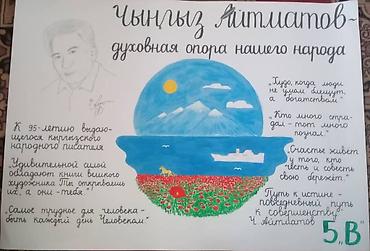 Чыңгыз Айтматов-
духовная опора нашего народа
К 95-летию выдаю-
щегося киргизского
народного писателя
"Удивительной силой
обладают книги великого
художника. Ты открываешь
их, а они - тебя"!
"Самое трудное для человека -
быть каждый день Человеком"
"Худо, когда люди
не умом блещут,
а богатством"
"Кто много стра-
дал - тот много
познал."
"Счастье живёт
у того, кто
честь и совесть
свою бережёт."
"Путь к истине -
повседневный путь
к совершенству"
Ч. Айтматов
5 "В"